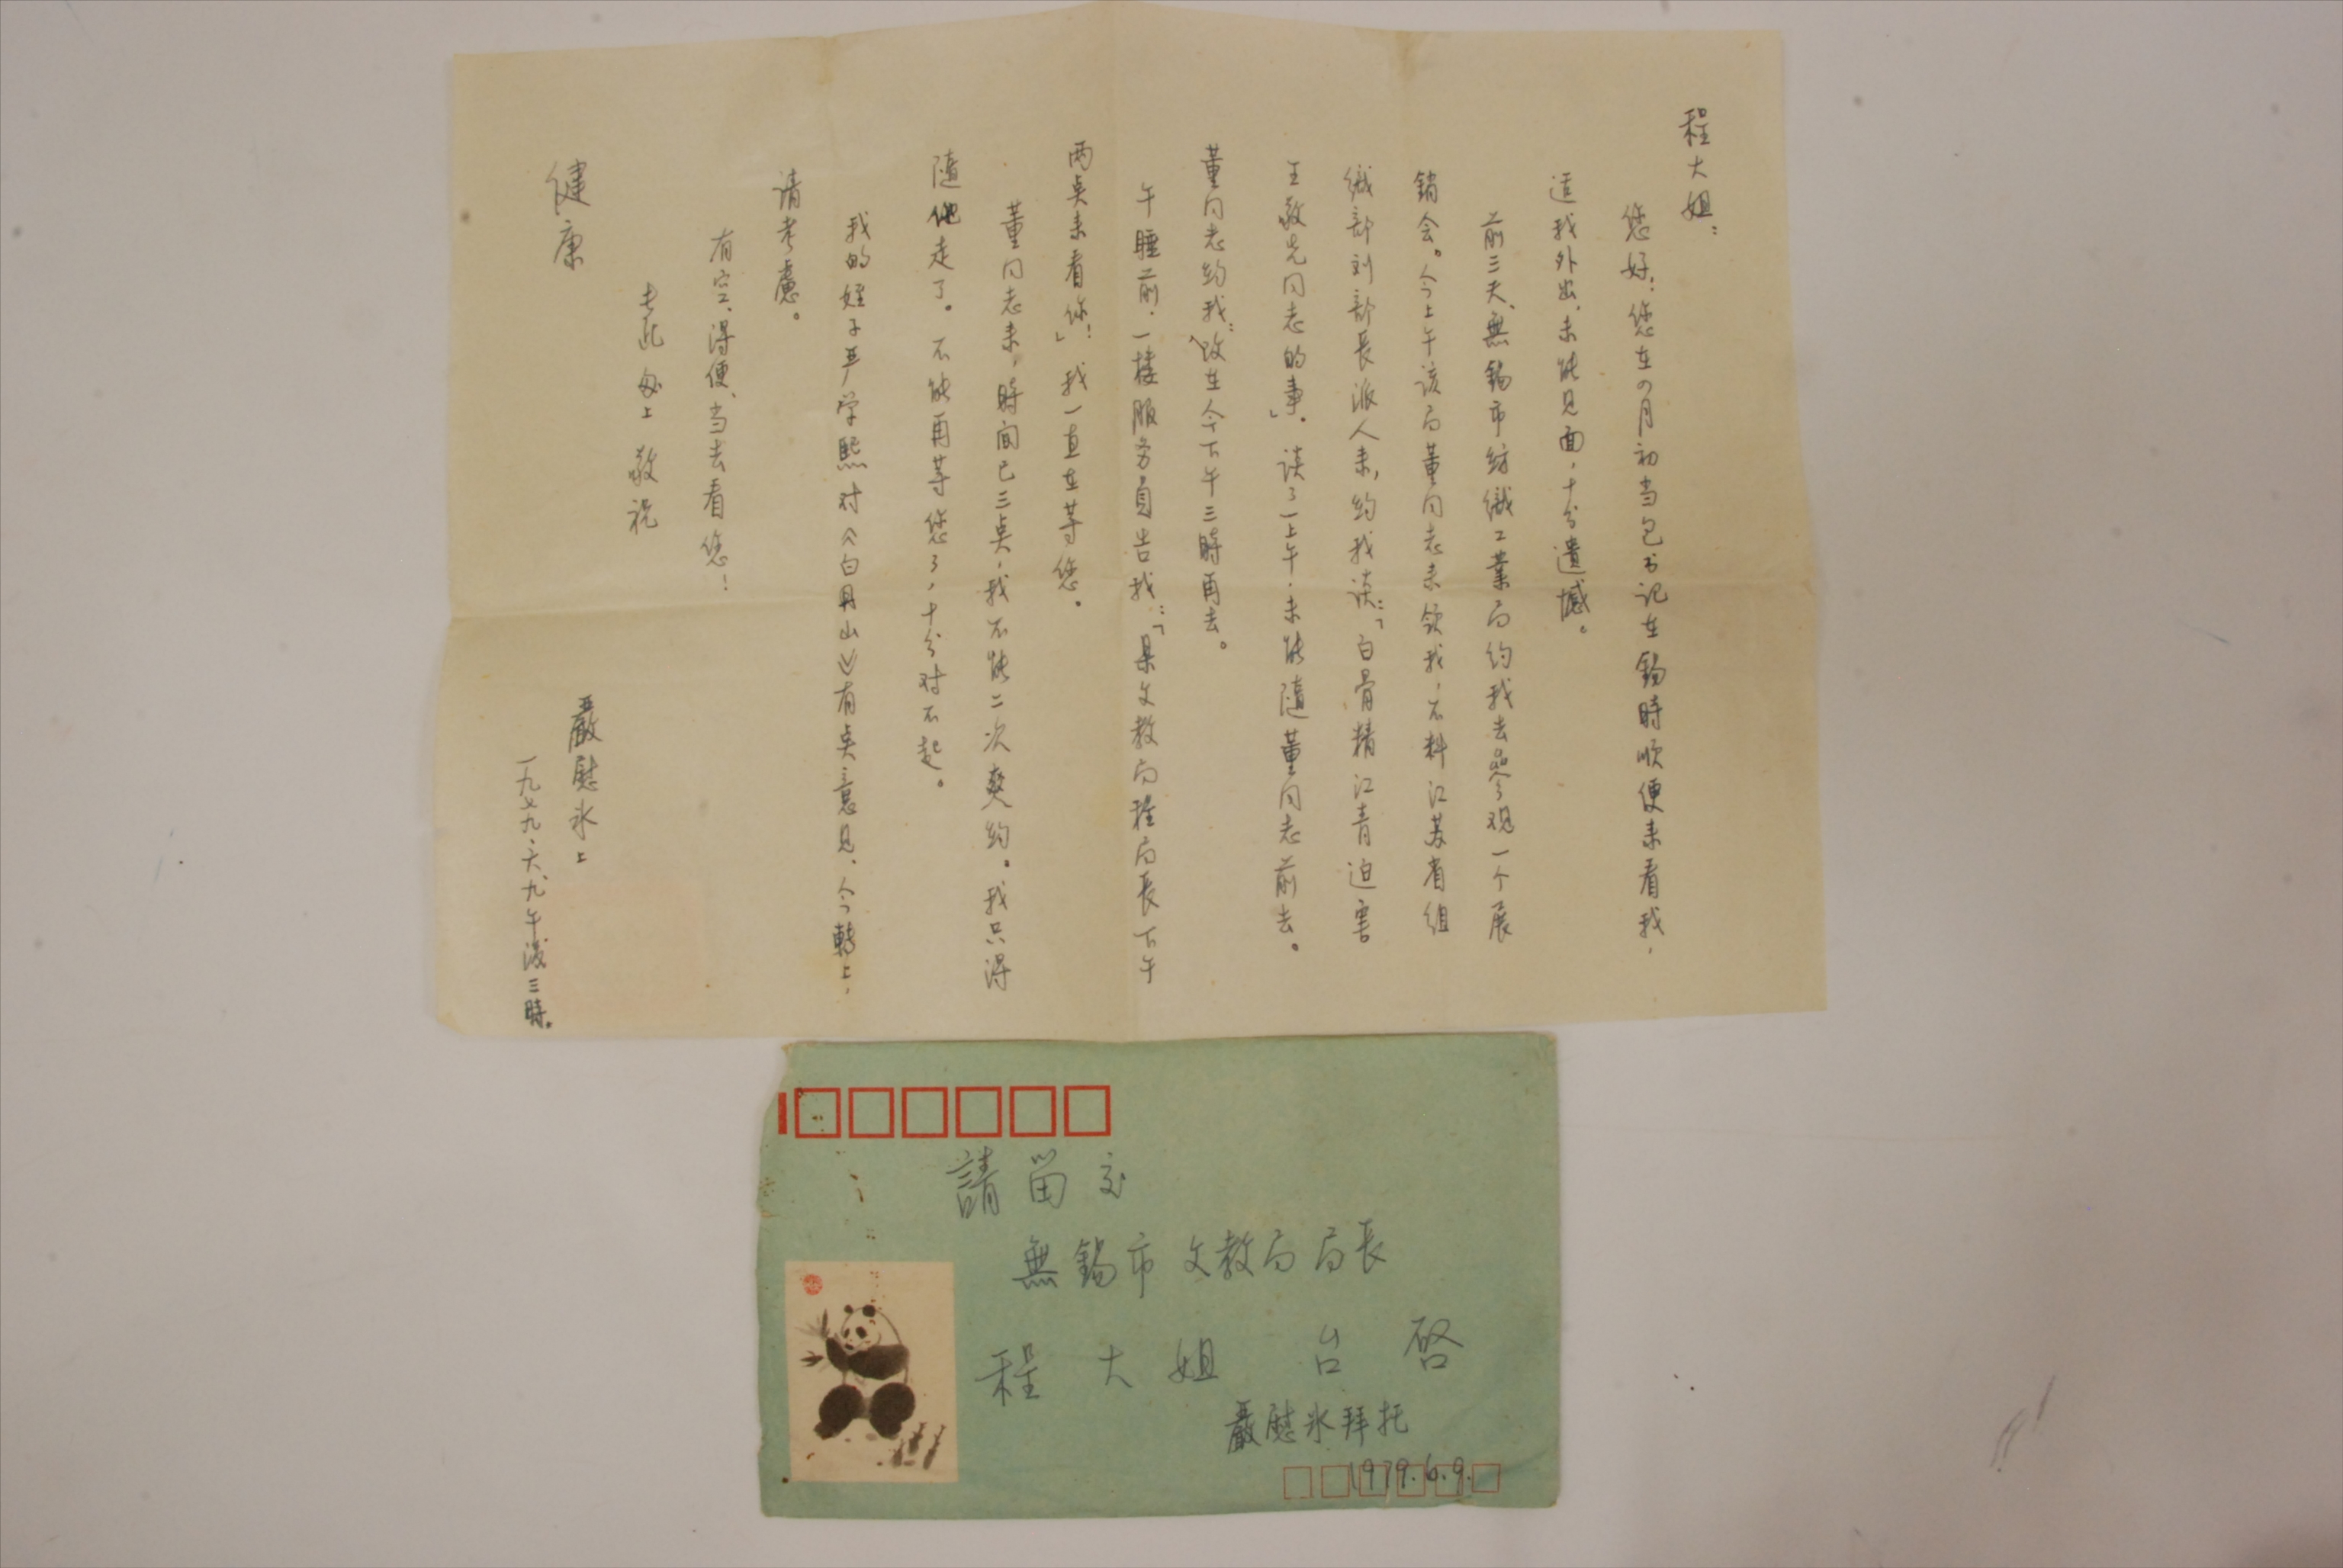 程大姐：
您好！您在四月初当包书记在錫時顺便来看我，
适我外出，未能见面，十分遺憾。
前三天、無錫市紡織工業局约我去參观一个展
銷会。今上午该局董同志来领我，不料江苏省组
織部刘部長派人来，约我谈：「白骨精江青迫害
王敬先同志的事」。谈了一上午，未能随董同志前去。
董同志约我：改在今下午三時再去。
午睡前，一楼服务員告我：「某文教局程局長下午
两点来看你！」我一直在等您。
董同志来，時间已三点，我不能二次爽约。我只得
随他走了。不能再等您了，十分对不起。
我的姪子严学熙对《白丹山》有点意見，今轉上，
请考慮。
有空、得便、当去看您！
专此 匆上 敬祝
健康
嚴慰冰上
一九七九、六、九、午後三時。
請留交
無錫市文教局局長
程大姐 台啓
嚴慰冰拜托
1979.6.9.